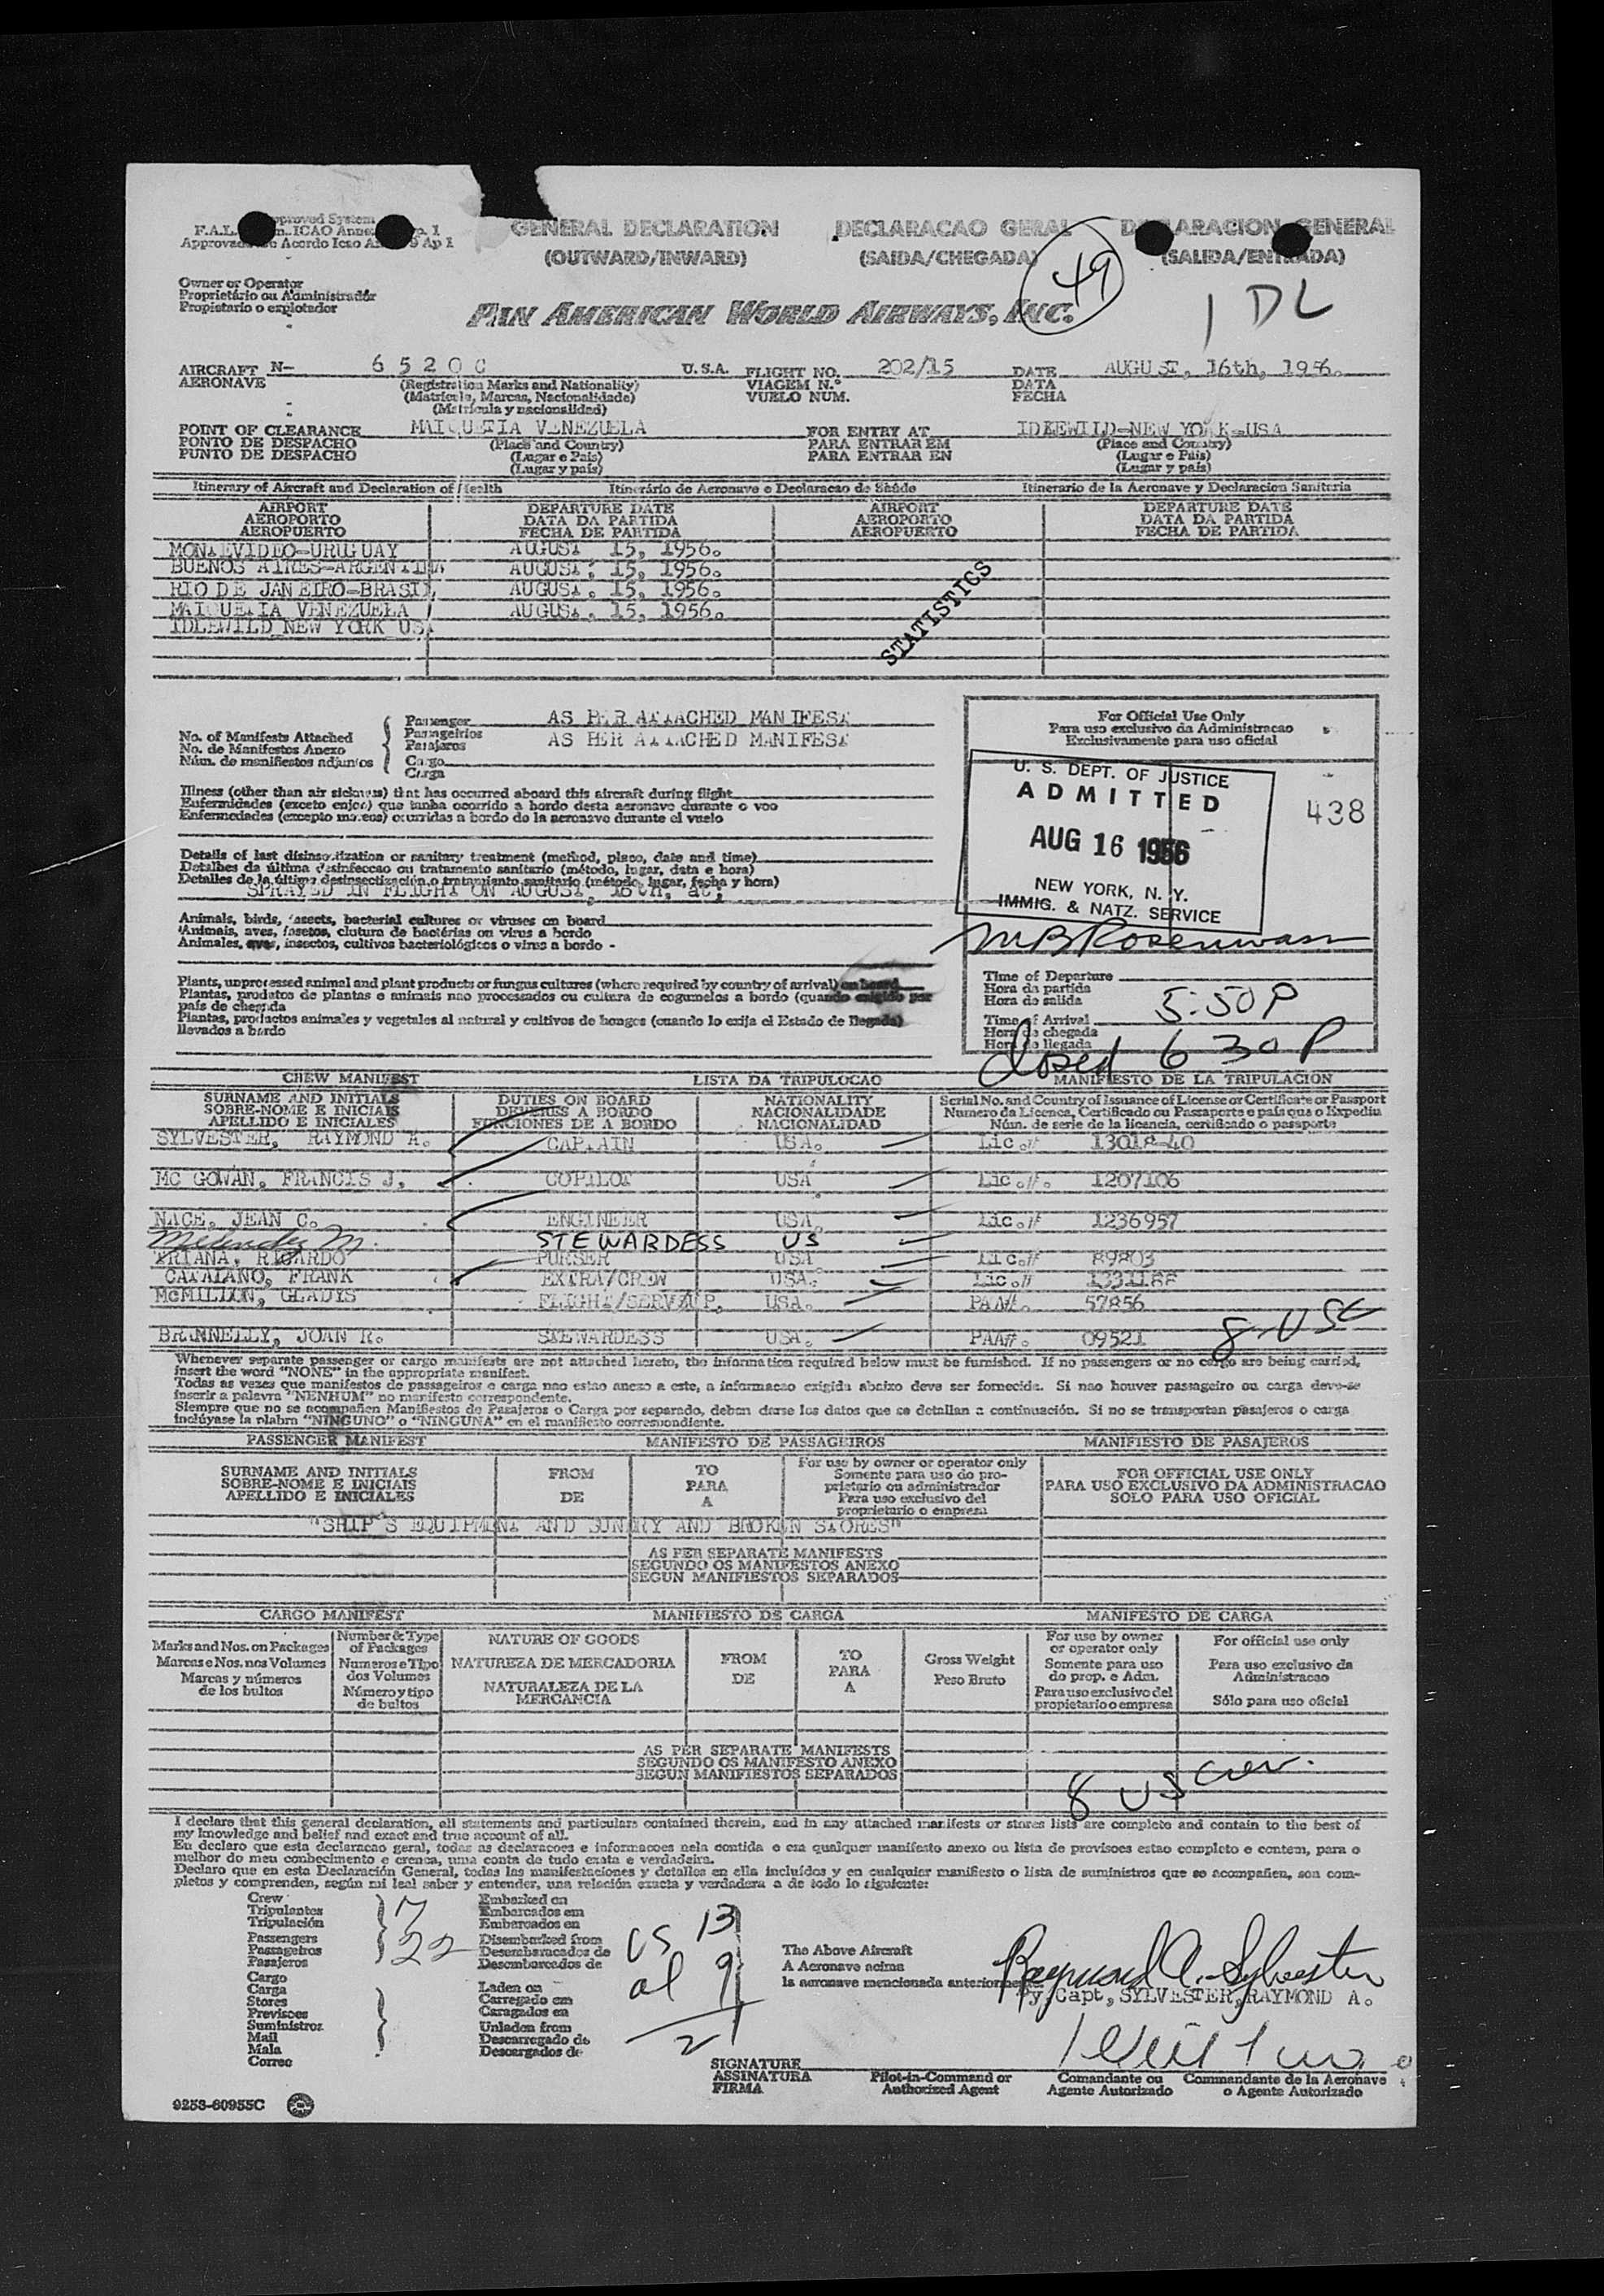 GENERAL DECLARATION DECLARACAO GERAL
(OUTWARD/INWARD) (SAIDA/CHEGADA)
49
1 DL
Owner or Operator
Proprietário ou Administradór
Propietario o explotador
PAN AMERICAN WORLD AIRWAYS, INC.
AIRCRAFT N- 6520C U.S.A. FLIGHT NO. 202/15 DATE AUGUST, 16th, 1956.
AERONAVE (Registration Marks and Nationality) VIAGEM N.º DATA
(Matrícula, Marcas, Nacionalidade) VUELO NUM. FECHA
(Matrícula y nacionalidad)
POINT OF CLEARANCE MAIQUETIA VENEZUELA FOR ENTRY AT IDLEWILD-NEW YORK-USA
PONTO DE DESPACHO (Place and Country) PARA ENTRAR EM (Place and Country)
PUNTO DE DESPACHO (Lugar e País) PARA ENTRAR EN (Lugar e País)
(Lugar y país) (Lugar y país)
Itinerary of Aircraft and Declaration of Health Itinerário de Aeronave e Declaracao de Saúde Itinerario de la Aeronave y Declaracion Sanitaria
AIRPORT DEPARTURE DATE AIRPORT DEPARTURE DATE
AEROPORTO DATA DA PARTIDA AEROPORTO DATA DA PARTIDA
AEROPUERTO FECHA DE PARTIDA AEROPUERTO FECHA DE PARTIDA
MONTEVIDEO-URUGUAY AUGUST 15, 1956.
BUENOS AIRES-ARGENTINA AUGUST, 15, 1956.
RIO DE JANEIRO-BRASIL AUGUST, 15, 1956.
MAIQUETIA VENEZUELA AUGUST, 15, 1956.
IDLEWILD NEW YORK USA
STATISTICS
No. of Manifests Attached
No. de Manifestos Anexo
Núm. de manifiestos adjuntos
Passenger AS PER ATTACHED MANIFEST
Passngeirios
Pasajeros AS PER ATTACHED MANIFEST
Cargo
Carga
For Official Use Only
Para uso exclusivo da Administracao
Exclusivamente para uso oficial
U. S. DEPT. OF JUSTICE
ADMITTED
AUG 16 1956
NEW YORK, N. Y.
IMMIG. & NATZ. SERVICE
438
Illness (other than air sickness) that has occurred aboard this aircraft during flight
Enfermidades (exceto enjoo) que tenha ocorrido a bordo desta aeronave durante o voo
Enfermedades (excepto mareos) ocurridas a bordo de la aeronave durante el vuelo
Details of last disinsectization or sanitary treatment (method, place, date and time)
Detalhes da última desinfeccao ou tratamento sanitario (método, lugar, data e hora)
Detalles de la última desinsectización o tratamiento sanitario (método, lugar, fecha y hora)
SPRAYED IN FLIGHT ON AUGUST, 16th, at;
Animals, birds, insects, bacterial cultures or viruses on board
Animais, aves, insetos, clutura de bactérias ou virus a bordo
Animales, aves, insectos, cultivos bacteriológicos o virus a bordo -
Plants, unprocessed animal and plant products or fungus cultures (where required by country of arrival) on board
Plantas, produtos de plantas e animais nao processados ou cultura de cogumelos a bordo (quando exigido por
país de chegada
Plantas, productos animales y vegetales al natural y cultivos de hongos (cuando lo exija el Estado de llegada)
llevados a bordo
Time of Departure
Hora da partida
Hora de salida
Time of Arrival 5:50P
Hora de chegada
Hora de llegada
Closed 6 30 P
CREW MANIFEST LISTA DA TRIPULOCAO MANIFIESTO DE LA TRIPULACION
SURNAME AND INITIALS DUTIES ON BOARD NATIONALITY Serial No. and Country of Issuance of License or Certificate or Passport
SOBRE-NOME E INICIAIS DEVERES A BORDO NACIONALIDADE Numero da Licenca, Certificado ou Passaporte e país que o Expediu
APELLIDO E INICIALES FUNCIONES DE A BORDO NACIONALIDAD Núm. de serie de la licencia, certificado o pasaporte
SYLVESTER, RAYMOND A. CAPTAIN USA. Lic.# 13018-40
MC GOWAN, FRANCIS J. COPILOT USA Lic.#. 1207106
NACE, JEAN C. ENGINEER USA. Lic.# 1236957
Melendez M. STEWARDESS US
TRIANA, RICARDO PURSER USA Lic.# 89803
CATALANO, FRANK EXTRA/CREW USA. Lic.# 1331188
McMILLON, GLADYS FLIGHT/SERV/SUP. USA. PAA#. 57856
8-USC
BRANNELLY, JOAN R. STEWARDESS USA. PAA#. 09521
Whenever separate passenger or cargo manifests are not attached hereto, the information required below must be furnished. If no passengers or no cargo are being carried,
insert the word "NONE" in the appropriate manifest.
Todas as vezes que manifestos de passageiros e carga nao estao anexo a este, a informacao exigida abaixo deve ser fornecida. Si nao houver passageiro ou carga deve-se
inserir a palavra "NENHUM" no manifesto correspondente.
Siempre que no se acompañen Manifiestos de Pasajeros o Carga por separado, deben darse los datos que se detallan a continuación. Si no se transportan pasajeros o carga
inclúyase la plabra "NINGUNO" o "NINGUNA" en el manifiesto correspondiente.
PASSENGER MANIFEST MANIFESTO DE PASSAGEIROS MANIFIESTO DE PASAJEROS
SURNAME AND INITIALS FROM TO For use by owner or operator only FOR OFFICIAL USE ONLY
SOBRE-NOME E INICIAIS DE PARA Somente para uso do pro- PARA USO EXCLUSIVO DA ADMINISTRACAO
APELLIDO E INICIALES A prietario ou administrador SOLO PARA USO OFICIAL
Para uso exclusivo del
proprietario o empresa
"SHIP'S EQUIPMENT AND SUNDRY AND BROKEN STORES"
AS PER SEPARATE MANIFESTS
SEGUNDO OS MANIFESTOS ANEXO
SEGUN MANIFIESTOS SEPARADOS
CARGO MANIFEST MANIFIESTO DE CARGA MANIFESTO DE CARGA
Marks and Nos. on Packages Number & Type of Packages NATURE OF GOODS FROM TO Gross Weight For use by owner or operator only For official use only
Marcas e Nos. nos Volumes Numeros e Tipo dos Volumes NATUREZA DE MERCADORIA DE PARA Peso Bruto Somente para uso do prop. e Adm. Para uso exclusivo da Administracao
Marcas y números de los bultos Número y tipo de bultos NATURALEZA DE LA MERCANCIA A Para uso exclusivo del propietario o empresa Sólo para uso oficial
AS PER SEPARATE MANIFESTS
SEGUNDO OS MANIFESTO ANEXO
SEGUN MANIFIESTOS SEPARADOS
8 US Crew.
I declare that this general declaration, all statements and particulars contained therein, and in any attached manifests or stores lists are complete and contain to the best of
my knowledge and belief and exact and true account of all.
Eu declaro que esta declaracao geral, todas as declaracoes e informacoes nela contida e em qualquer manifesto anexo ou lista de provisoes estao completo e contem, para o
melhor do meu conhecimento e crenca, uma conta de tudo exata e verdadeira.
Declaro que en esta Declaración General, todas las manifestaciones y detalles en ella incluídos y en cualquier manifiesto o lista de suministros que se acompañen, son com-
pletos y comprenden, según mi leal saber y entender, una relación exacta y verdadera a de todo lo siguiente:
Crew Embarked on
Tripulantes 7 Embarcados em
Tripulación Embarcados en
Passengers Disembarked from
Passageiros 22 Desembaracados de
Pasajeros Desembarcados de
US 13
al 9
Cargo
Carga Laden on
Stores Carregado em
Previsoes Caragados en
Suministros Unladen from
Mail Descarregado de
Mala Descargados de
Correo
The Above Aircraft
A Aeronave acima
la aeronave mencionada anteriormente
Raymond A. Sylvester
By, Capt, SYLVESTER, RAYMOND A.
SIGNATURE
ASSINATURA Pilot-in-Command or Comandante ou Commandante de la Aeronave
FIRMA Authorized Agent Agente Autorizado o Agente Autorizado
9253-60955C